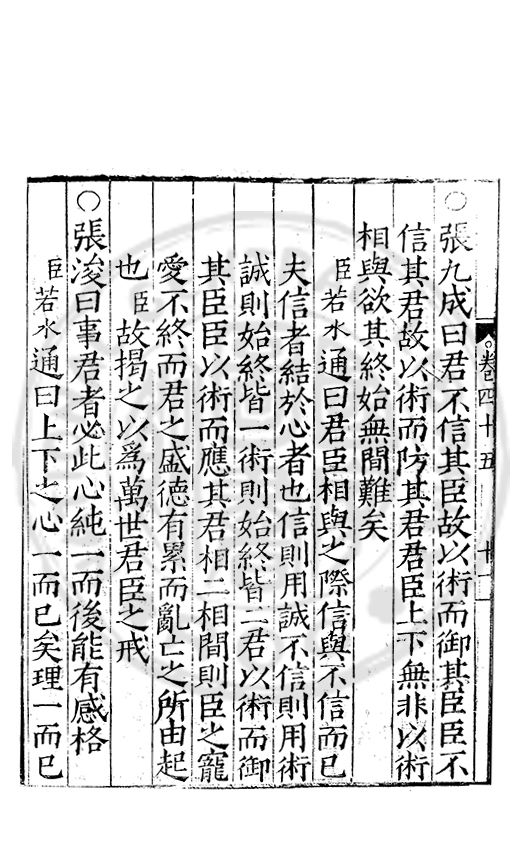 卷四十五 廿一
○張九成曰君不信其臣故以術而御其臣臣不
信其君故以術而防其君君臣上下無非以術
相與欲其終始無間難矣
臣若水通曰君臣相與之際信與不信而已
夫信者結於心者也信則用誠不信則用術
誠則始終皆一術則始終皆二君以術而御
其臣臣以術而應其君相二相間則臣之寵
愛不終而君之盛德有累而亂亡之所由起
也臣故揭之以爲萬世君臣之戒
○張浚曰事君者必此心純一而後能有感格
臣若水通曰上下之心一而已矣理一而已